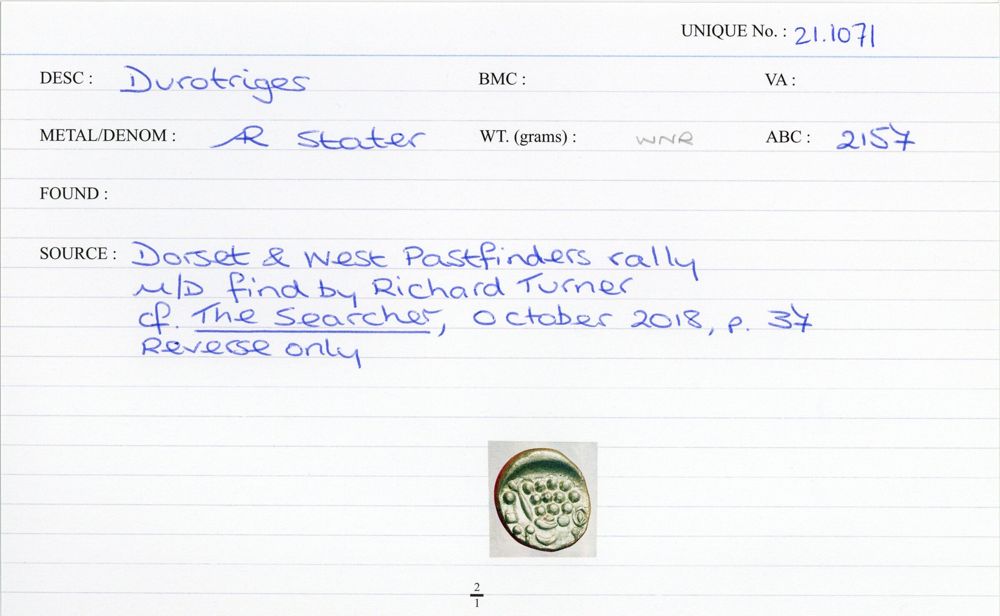 UNIQUE No. : 21.1071
DESC : Durotriges BMC : VA :
METAL/DENOM : AR Stater WT. (grams) : WNR ABC : 2157
FOUND :
SOURCE : Dorset & West Pastfinders rally
M/D find by Richard Turner
cf. The Searcher, October 2018, p. 37
Reverse only
2
1